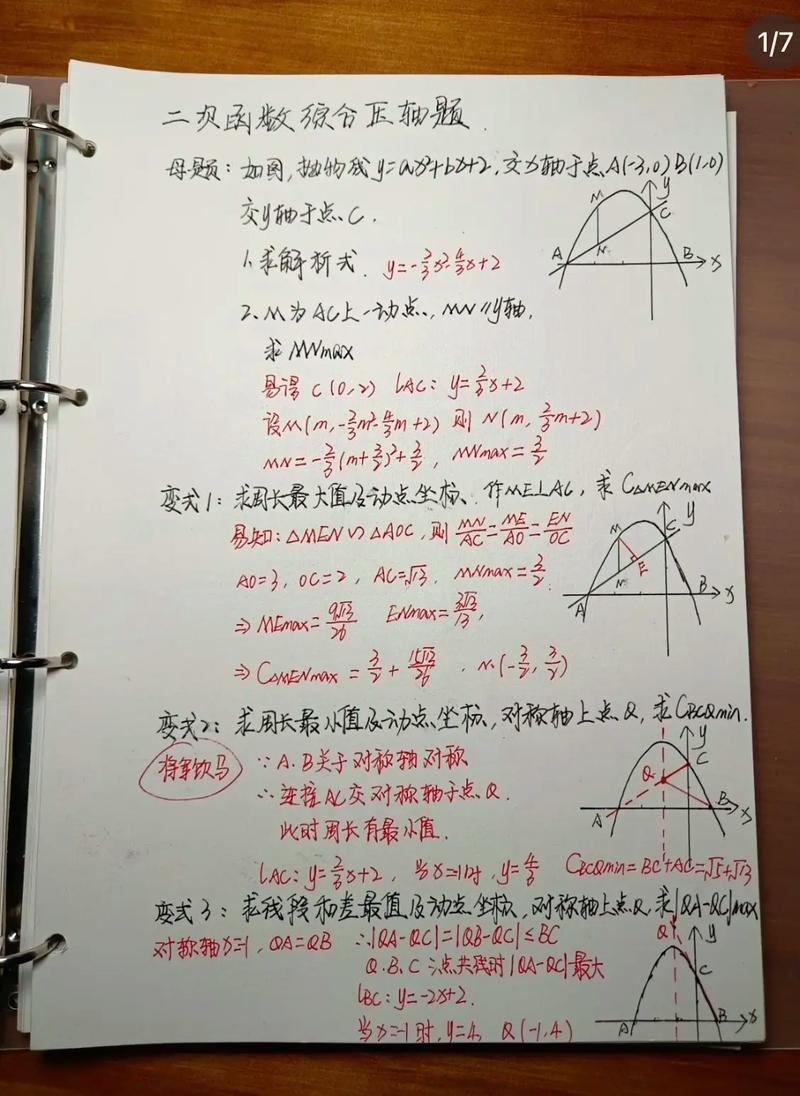 1/7
二次函数综合压轴题.
母题：如图,抛物线 y=ax²+bx+2,交x轴于点A(-3,0) B(1,0)
交y轴于点C.
1.求解析式. y=-2/3x²-4/3x+2
2.M为AC上一动点,MN∥y轴,
求MNmax
易得 C(0,2) lAC: y=2/3x+2
设M(m,-2/3m²-4/3m+2) 则 N(m, 2/3m+2)
MN=-2/3(m+3/2)²+3/2, MNmax=3/2
M
y
C
A
N
B
x
变式1：求周长最大值及动点坐标、作ME⊥AC, 求C△MENmax
易知:△MEN∽△AOC, 则 MN/AC=ME/AO=EN/OC
AO=3, OC=2, AC=√13, MNmax=3/2.
⇒ MEmax=9√13/26 ENmax=3√13/13,
⇒ C△MENmax = 3/2+15√13/26 . M(-3/2, 3/2)
M
C
E
N
A
B
x
变式2：求周长最小值及动点坐标,对称轴上点Q,求CBCQmin.
将军饮马
∵ A.B关于对称轴对称
∴ 连接AC交对称轴于点Q.
此时周长有最小值.
lAC: y=2/3x+2, 当x=-1时, y=4/3 CBCQmin=BC+AC=√5+√13
y
C
Q
A
B
x
变式3：求线段和差最值及动点坐标,对称轴上点Q,求|QA-QC|max
对称轴x=-1, QA=QB ∴|QA-QC|=|QB-QC|≤BC
Q.B.C三点共线时|QA-QC|最大
lBC: y=-2x+2.
当x=-1时,y=4, Q(-1,4)
Q
y
C
A
B
x